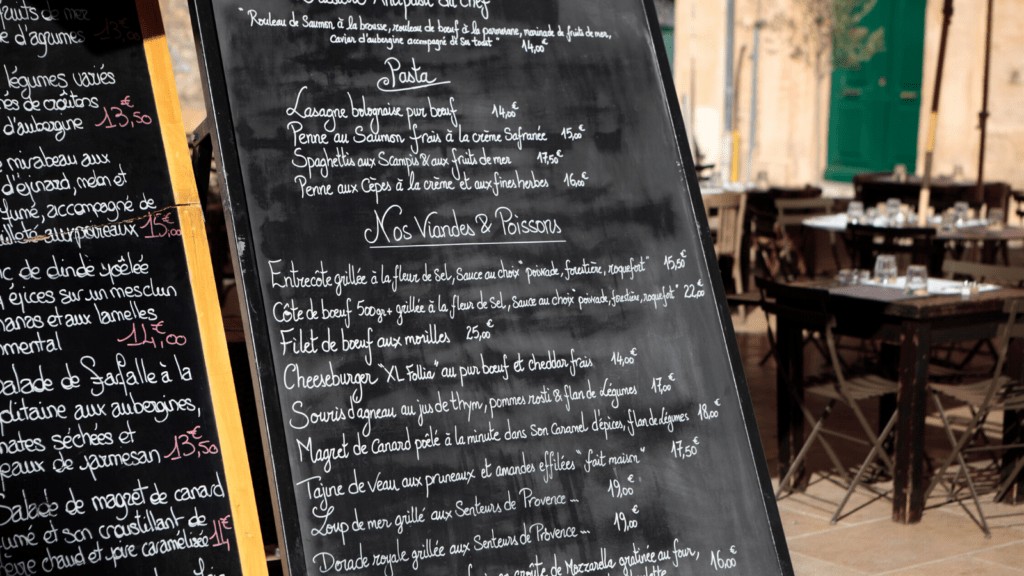 fruits de mer
d'agrumes
légumes variés
de croûtons
d'aubergine 13,50€
mirabeau aux
d'épinard, melon et
fumé, accompagné de
aux poireaux 15,00€
de dinde poêlée
épices sur un mesclun
ananas et aux lamelles
14,00€
Salade de Farfalle à la
napolitaine aux aubergines,
tomates séchées et
de parmesan 13,50€
Salade de magret de canard
fumé et son croustillant de
chèvre chaud et poire caramélisée 14€
du Chef
"Rouleau de Saumon à la brousse, rouleau de boeuf à la parmesane, marinade de fruits de mer,
Caviar d'aubergine accompagné de Sa toast" 14,00€
Pasta
Lasagne bolognaise pur bœuf 14,00€
Penne au Saumon frais à la crème Safranée 15,00€
Spaghettis aux Scampis & aux fruits de mer 17,50€
Penne aux Cèpes à la crème et aux fines herbes 16,00€
Nos Viandes & Poissons
Entrecôte grillée à la fleur de Sel, Sauce au choix "poivade, forestière, roquefort" 15,50€
Côte de bœuf 500gr+ grillée à la fleur de Sel, Sauce au choix "poivade, forestière, roquefort" 22,00€
Filet de bœuf aux morilles 25,00€
Cheeseburger "XL Follia" au pur bœuf et cheddar frais 14,00€
Souris d'agneau au jus de thym, pommes rosti & flan de légumes 17,00€
Magret de Canard poêlé à la minute dans Son Caramel d'épices, flan de légumes 18,00€
Tajine de veau, aux pruneaux et amandes effilées "fait maison" 17,50€
Loup de mer grillé aux Senteurs de Provence ... 19,00€
Dorade royale grillée aux Senteurs de Provence ... 19,00€
croûte de Mozzarella gratinée au four, 16,00€